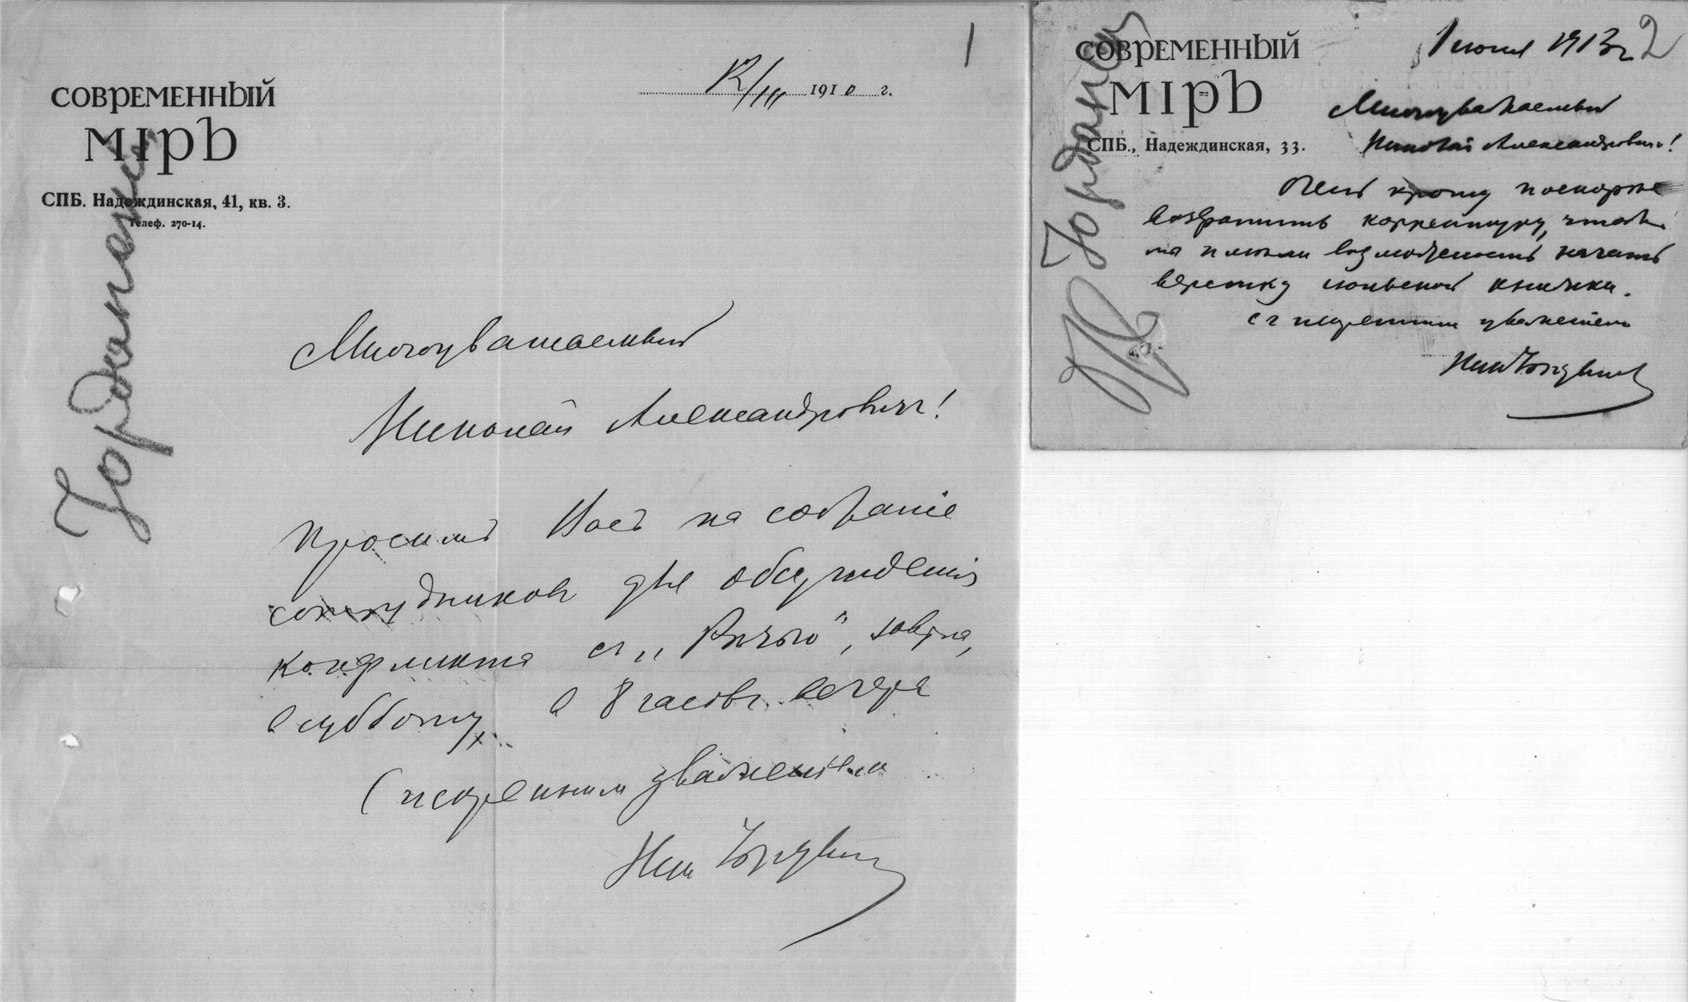 1
СОВРЕМЕННЫЙ
МIРЪ
СПБ. Надеждинская, 41, кв. 3.
Телеф. 270-14.
12/III 1910 г.
Іорданскій
Многоуважаемый
Николай Александровичъ!
Просимъ Васъ на собраніе
сотрудниковъ для обсужденія
конфликта съ „Рѣчью", завтра,
въ субботу, в 8 часовъ вечера
С искреннимъ уваженіемъ
Ник Іорданскій
2
СОВРЕМЕННЫЙ
МIРЪ
СПБ., Надеждинская, 33.
1 июня 1913 г
Іорданскій
Многоуважаемый
Николай Александровичъ!
Очень прошу поскорѣе
возвратить корректуру, чтобы
мы имѣли возможность начать
верстку июньской книжки.
съ искреннимъ уваженіемъ
Ник Іорданскій